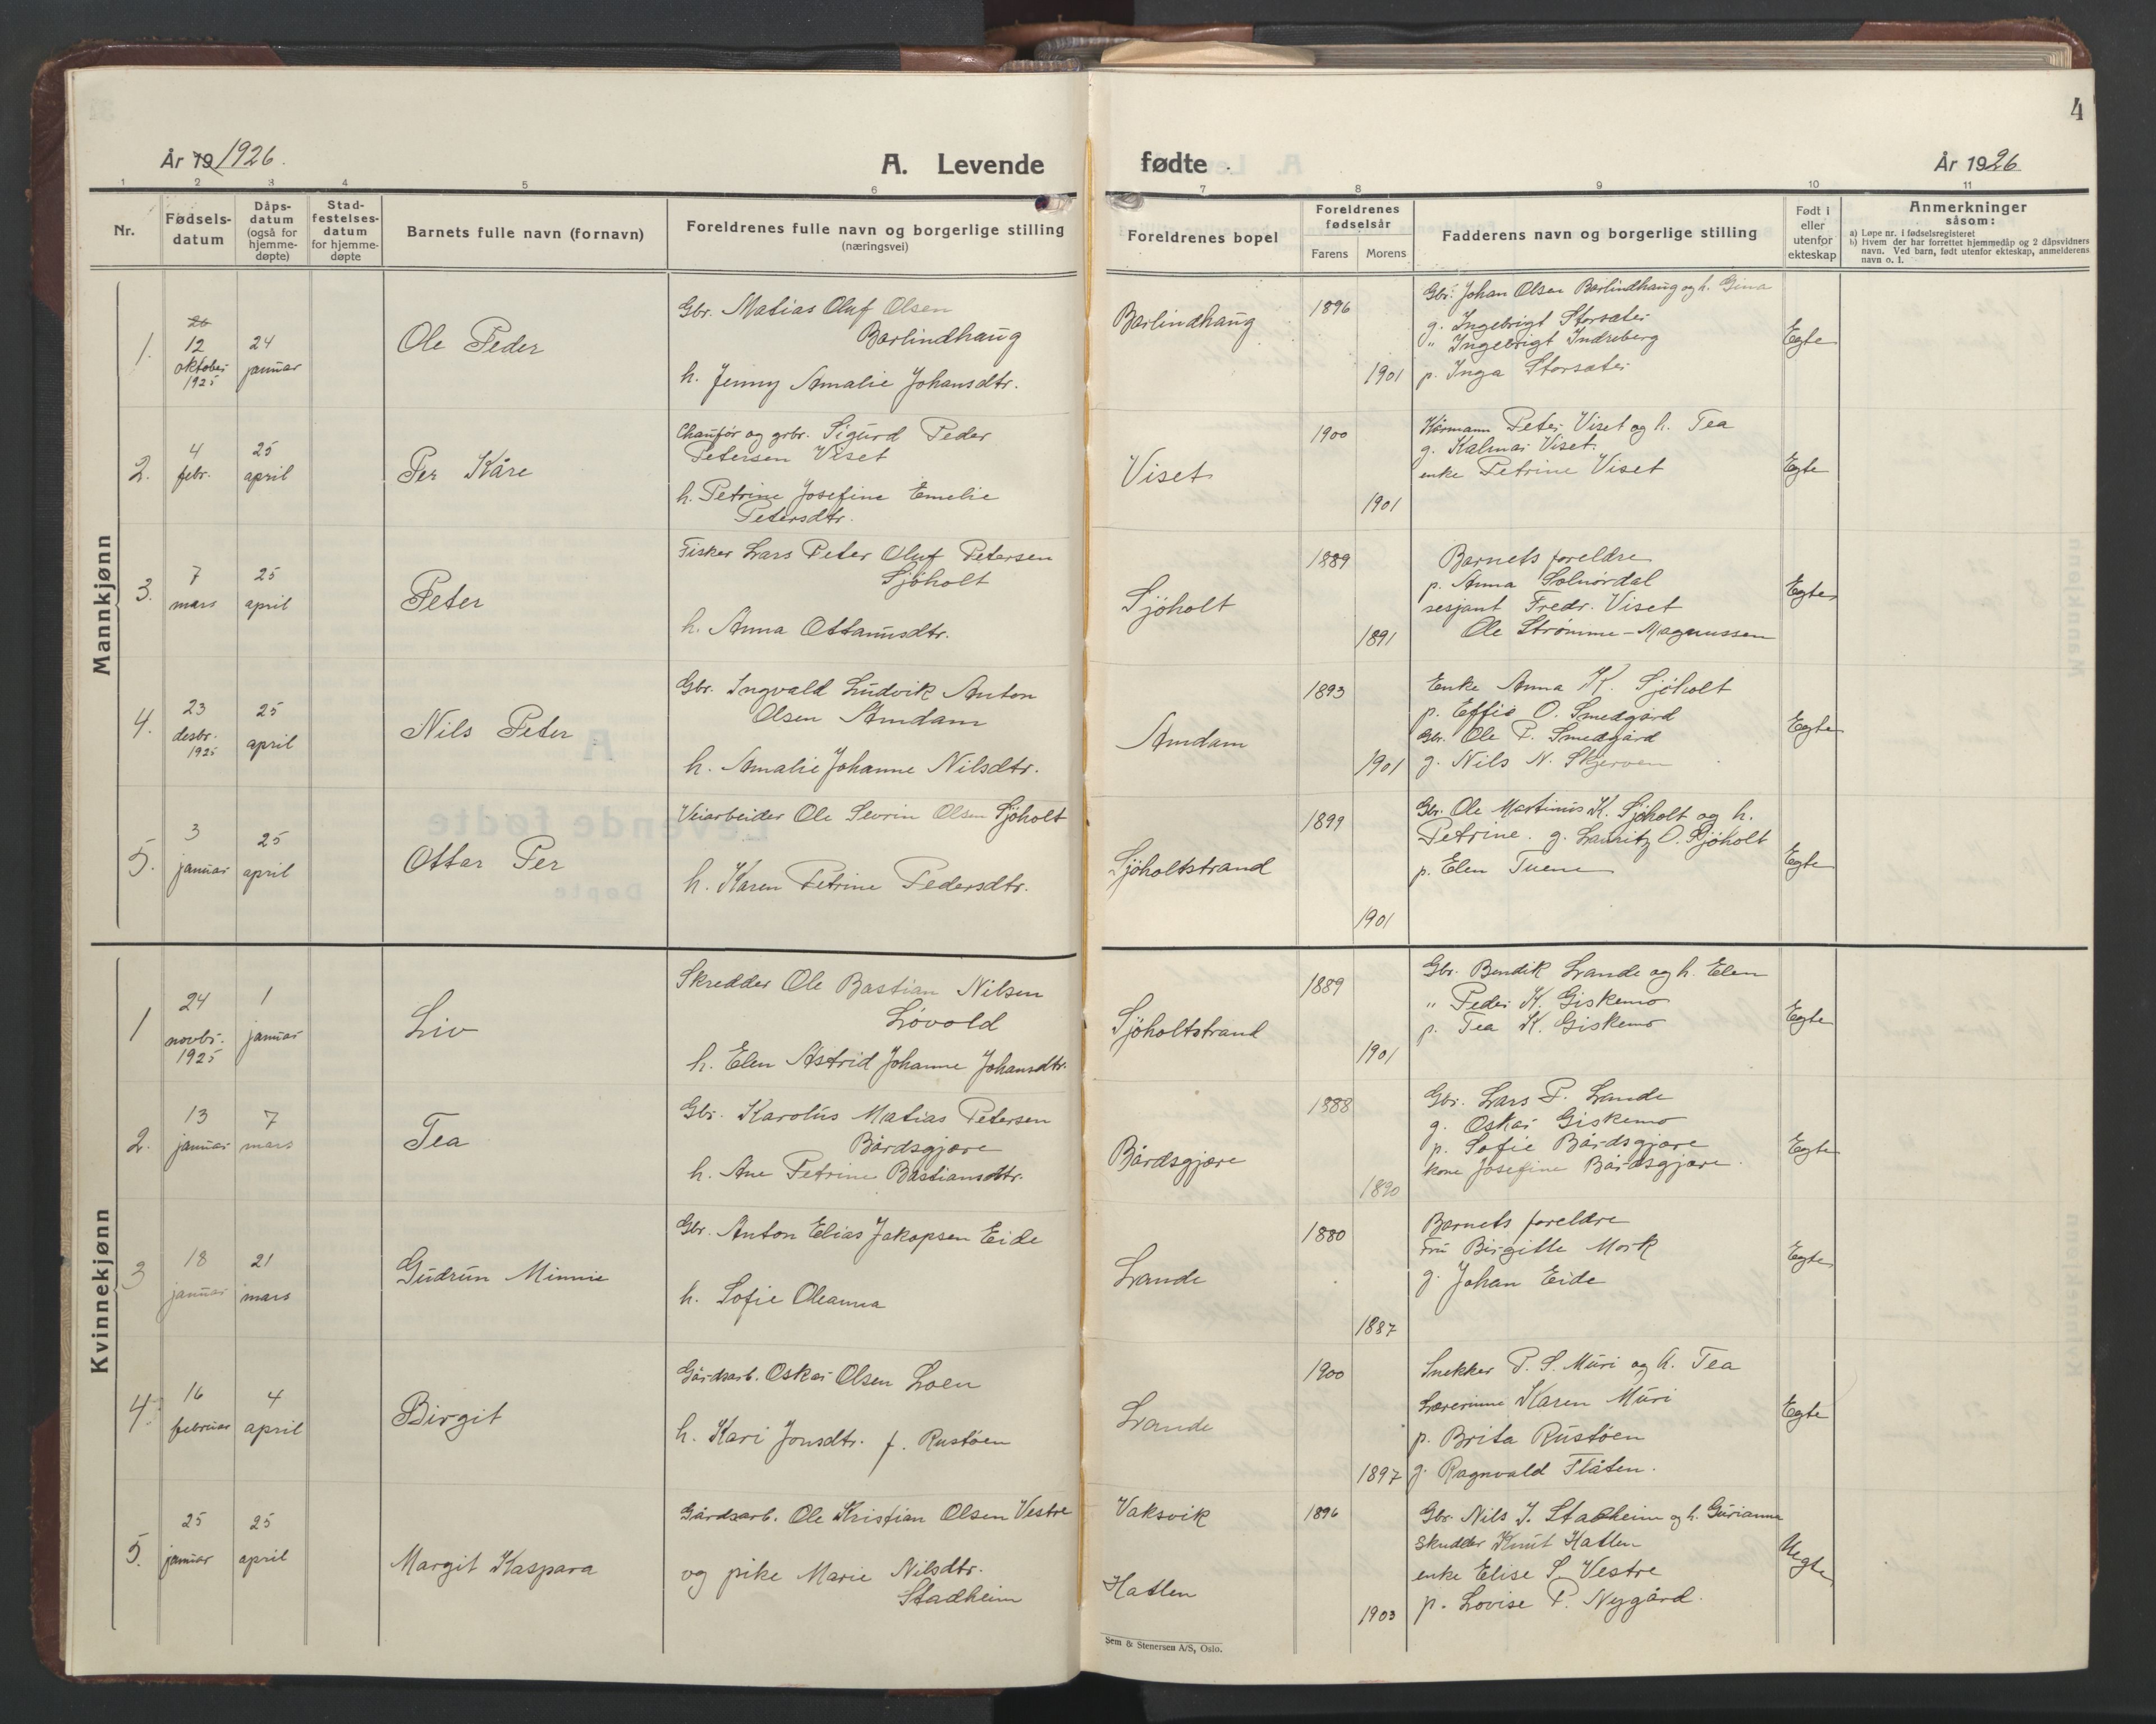 4
År 19 1926.
A. Levende fødte
År 1926
1 2 3 4 5 6 7 8 9 10 11
Nr.
Fødsels-
datum
Dåps-
datum
(også for
hjemme-
døpte)
Stad-
festelses-
datum
for hjemme-
døpte
Barnets fulle navn (fornavn)
Foreldrenes fulle navn og borgerlige stilling
(næringsvei)
Foreldrenes bopel
Foreldrenes
fødselsår
Farens Morens
Fadderens navn og borgerlige stilling
Født i
eller
utenfor
ekteskap
Anmerkninger
såsom:
a) Løpe nr. i fødselsregisteret
b) Hvem der har forrettet hjemmedåp og 2 dåpsvidners
navn. Ved barn, født utenfor ekteskap, anmelderens
navn o. l.
Mannkjønn
1.
26
12
oktober
1925
24
januar
Ole Peder
Gbr. Matias Oluf Olsen
Barlindhaug
h. Jenny Amalie Johansdtr.
Barlindhaug
1896
1901
Gbr. Johan Olsen Barlindhaug og h. Gina
g. Ingebrigt Storsæter
" Ingebrigt Indreberg
p. Inga Storsæter
Egte
2.
4
febr.
25
april
Per Kåre
Chaufør og grbr. Sigurd Peder
Petersen Viset
h. Petrine Josefine Emelie
Petersdtr.
Viset
1900
1901
Kårmann Peter Viset og h. Tea
g. Kalmar Viset.
enke Petrine Viset
Egte
3.
7
mars
25
april
Peter
Fisker Lars Peter Oluf Petersen
Sjöholt
h. Anna Ottarinsdtr.
Sjöholt
1889
1891
Barnets foreldre
p. Anna Solnørdal
sesjant Fredr. Viset
Ole Strömme-Magnussen
Egte
4.
23
desbr.
1925
25
april
Nils Peter
Gbr. Ingvald Ludvik Anton
Olsen Amdam
h. Amalie Johanne Nilsdtr.
Amdam
1893
1901
Enke Anna K. Sjöholt
p. Effie O. Smedgård
Gbr. Ole P. Smedgård
g. Nils N. Skjerven
Egte
5.
3
januar
25
april
Ottar Per
Veiarbeider Ole Sevrin Olsen Sjöholt
h. Karen Petrine Pedersdtr.
Sjöholtstrand
1899
1901
Gbr. Ole Martinus K. Sjöholt og h.
Petrine. g. Lauritz O. Sjöholt
p. Elen Tuene
Egte
Kvinnekjønn
1
24
novbr.
1925
1
januar
Liv
Skredder Ole Bastian Nilsen
Lövold
h. Elen Astrid Johanne Johansdtr.
Sjöholtstrand
1889
1901
Gbr. Bendik Lande og h. Elen
" Peder K. Giskemo
p. Tea K. Giskemo
Egte
2.
13
januar
7
mars
Tea
Gbr. Karolus Matias Petersen
Bårdsgjære
h. Ane Petrine Bastiansdtr.
Bårdsgjære
1888
1890
Gbr. Lars P. Lande
g. Oskar Giskemo
p. Sofie Bårdsgjære
kone Josefine Bårdsgjære.
Egte
3
18
januar
21
mars
Gudrun Minnie
Gbr. Anton Elias Jakopsen Eide
h. Sofie Oleanna
Lande
1880
1887
Barnets foreldre
Fru Birgitte Mork
g. Johan Eide
Egte
4.
16
februar
4
april
Birgit
Gårdsarb. Oskar Olsen Loen
h. Kari Jonsdtr. f. Rustöen
Lande
1900
1897
Snekker P. S. Muri og h. Tea
Lærerinne Karen Muri
p. Brita Rustöen
g. Ragnvald Flåten.
Egte
5.
25
januar
25
april
Margit Kaspara
Gårdsarb. Ole Kristian Olsen Vestre
og pike Marie Nilsdtr.
Stadheim
Vaksvik
Hatlen
1896
1903
Gbr. Nils J. Stadheim og h. Gurianna
Skredder Knut Hatlen
enke Elise S. Vestre
p. Lovise P. Nygård.
Uegte
Sem & Stenersen A/S, Oslo.